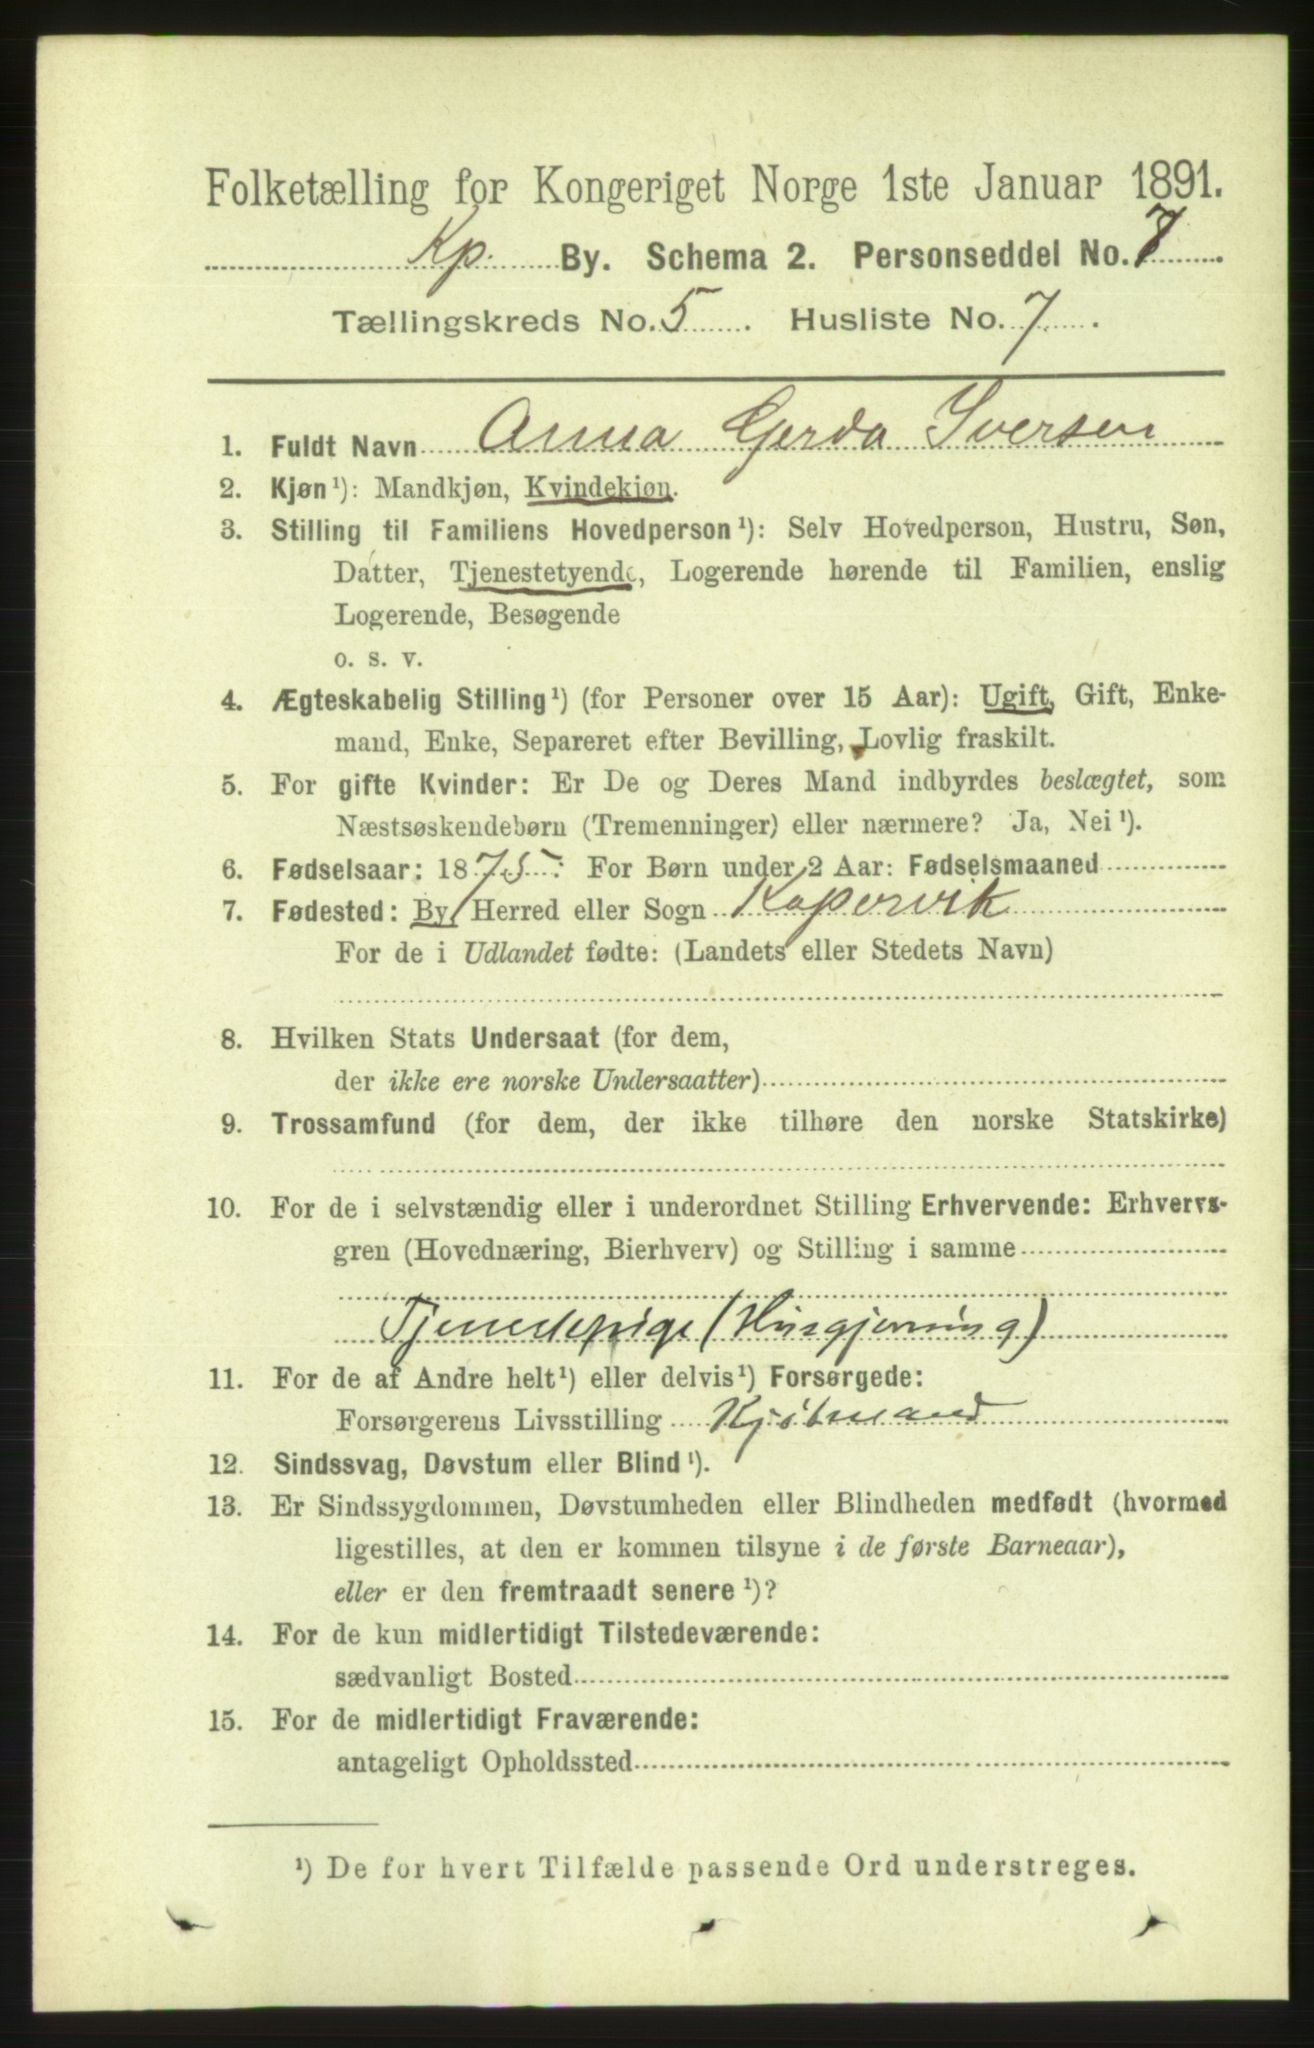 Folketælling for Kongeriget Norge 1ste Januar 1891.
Kp. By. Schema 2. Personseddel No. 7
Tællingskreds No. 5. Husliste No. 7.
1. Fuldt Navn Anna Gerda Iversen
2. Kjøn¹): Mandkjøn, Kvindekjøn.
3. Stilling til Familiens Hovedperson¹): Selv Hovedperson, Hustru, Søn,
Datter, Tjenestetyende, Logerende hørende til Familien, enslig
Logerende, Besøgende
o. s. v.
4. Ægteskabelig Stilling¹) (for Personer over 15 Aar): Ugift, Gift, Enke-
mand, Enke, Separeret efter Bevilling, Lovlig fraskilt.
5. For gifte Kvinder: Er De og Deres Mand indbyrdes beslægtet, som
Næstsøskendebørn (Tremenninger) eller nærmere? Ja, Nei¹).
6. Fødselsaar: 1875. For Børn under 2 Aar: Fødselsmaaned
7. Fødested: By, Herred eller Sogn Kopervik
For de i Udlandet fødte: (Landets eller Stedets Navn)
8. Hvilken Stats Undersaat (for dem,
der ikke ere norske Undersaatter)
9. Trossamfund (for dem, der ikke tilhøre den norske Statskirke)
10. For de i selvstændig eller i underordnet Stilling Erhvervende: Erhvervs-
gren (Hovednæring, Bierhverv) og Stilling i samme
Tjenestepige (Husgjerning)
11. For de af Andre helt¹) eller delvis¹) Forsørgede:
Forsørgerens Livsstilling Kjøbmand
12. Sindssvag, Døvstum eller Blind¹).
13. Er Sindssygdommen, Døvstumheden eller Blindheden medfødt (hvormed
ligestilles, at den er kommen tilsyne i de første Barneaar),
eller er den fremtraadt senere¹)?
14. For de kun midlertidigt Tilstedeværende:
sædvanligt Bosted
15. For de midlertidigt Fraværende:
antageligt Opholdssted
¹) De for hvert Tilfælde passende Ord understreges.